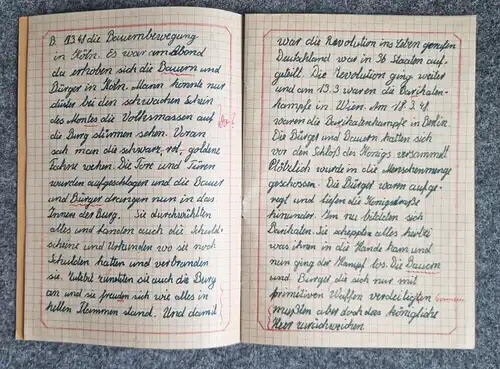 B. 3.48 die Bauernbewegung
in Köln. Es war am Abend
da erhoben sich die Bauern und
Bürger in Köln. Mann konnte nur
düster bei den schwachen Schein
des Montes die Volksmassen auf
die Burg stürmen sehen. Voran
sah man die schwarz, rot, goldene
Fahne wehen. Die Tore und Türen
wurden aufgeschlagen und die Bauer
und Bürger drangen nun in das
Innen der Burg. Sie durchwühlten
alles und fanden auch die Schuld-
scheine und Urkunden wo sie noch
Schulden hatten und verbrunden
sie. Zuletzt zündeten sie auch die Burg
an und sie freuden sich wie alles in
hellen Flammen stand. Und damit
war die Revolution ins Leben gerufen
Deutschland war in 36 Staaten auf-
geteilt. Die Revolution ging weiter
und am 13.3 waren die Barikaten-
kämpfe in Wien. Am 18.3.48.
waren die Barikatenkämpfe in Berlin.
Die Bürger und Bauern hatten sich
vor den Schloß des Königs versammelt
Plötzlich wurde in die Menschenmenge
geschossen. Die Bürger waren aufge-
regt und liefen die Königsstraße
hinunder. Im nu bildeten sich
Barikaten. Sie schleppten alles herbei
was ihnen in die Hände kam und
nun ging der Kampf los. Die Bauern
und Bürger die sich nur mit
primitiven Waffen verdeitigten
mußten aber doch das königliche
Heer zurückweichen.